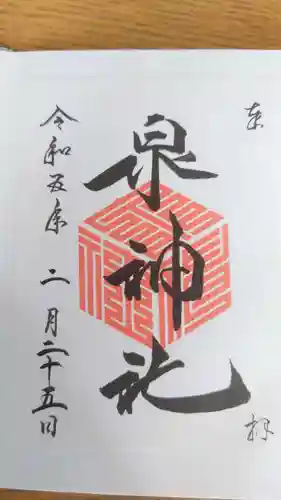 奉拝
泉神社
令和五年 二月二十五日